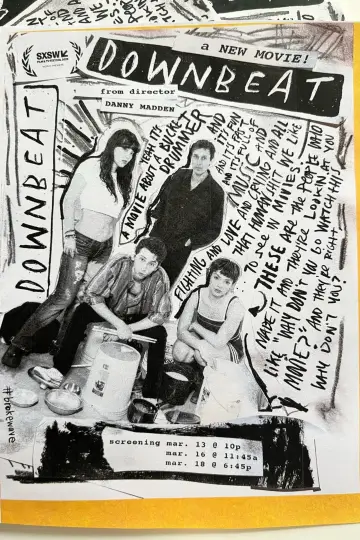 SXSW
a NEW MOVIE!
DOWNBEAT
from director
DANNY MADDEN
DOWNBEAT
A MOVIE ABOUT A BUCKET
DRUMMER
AND
AND IT'S FULL OF
MUSIC AND
FIGHTING AND LOVE AND CRYING AND ALL
THAT HUMAN SHIT WE LIKE
TO SEE IN MOVIES.
THESE ARE THE PEOPLE WHO
MADE IT AND THEY'RE LOOKIN' AT YOU
LIKE "WHY DON'T YOU GO WATCH THIS
MOVIE?" AND THEY'RE RIGHT.
WHY DON'T YOU?
#brokewave
screening mar. 13 @ 10p
mar. 16 @ 11:45a
mar. 18 @ 6:45p